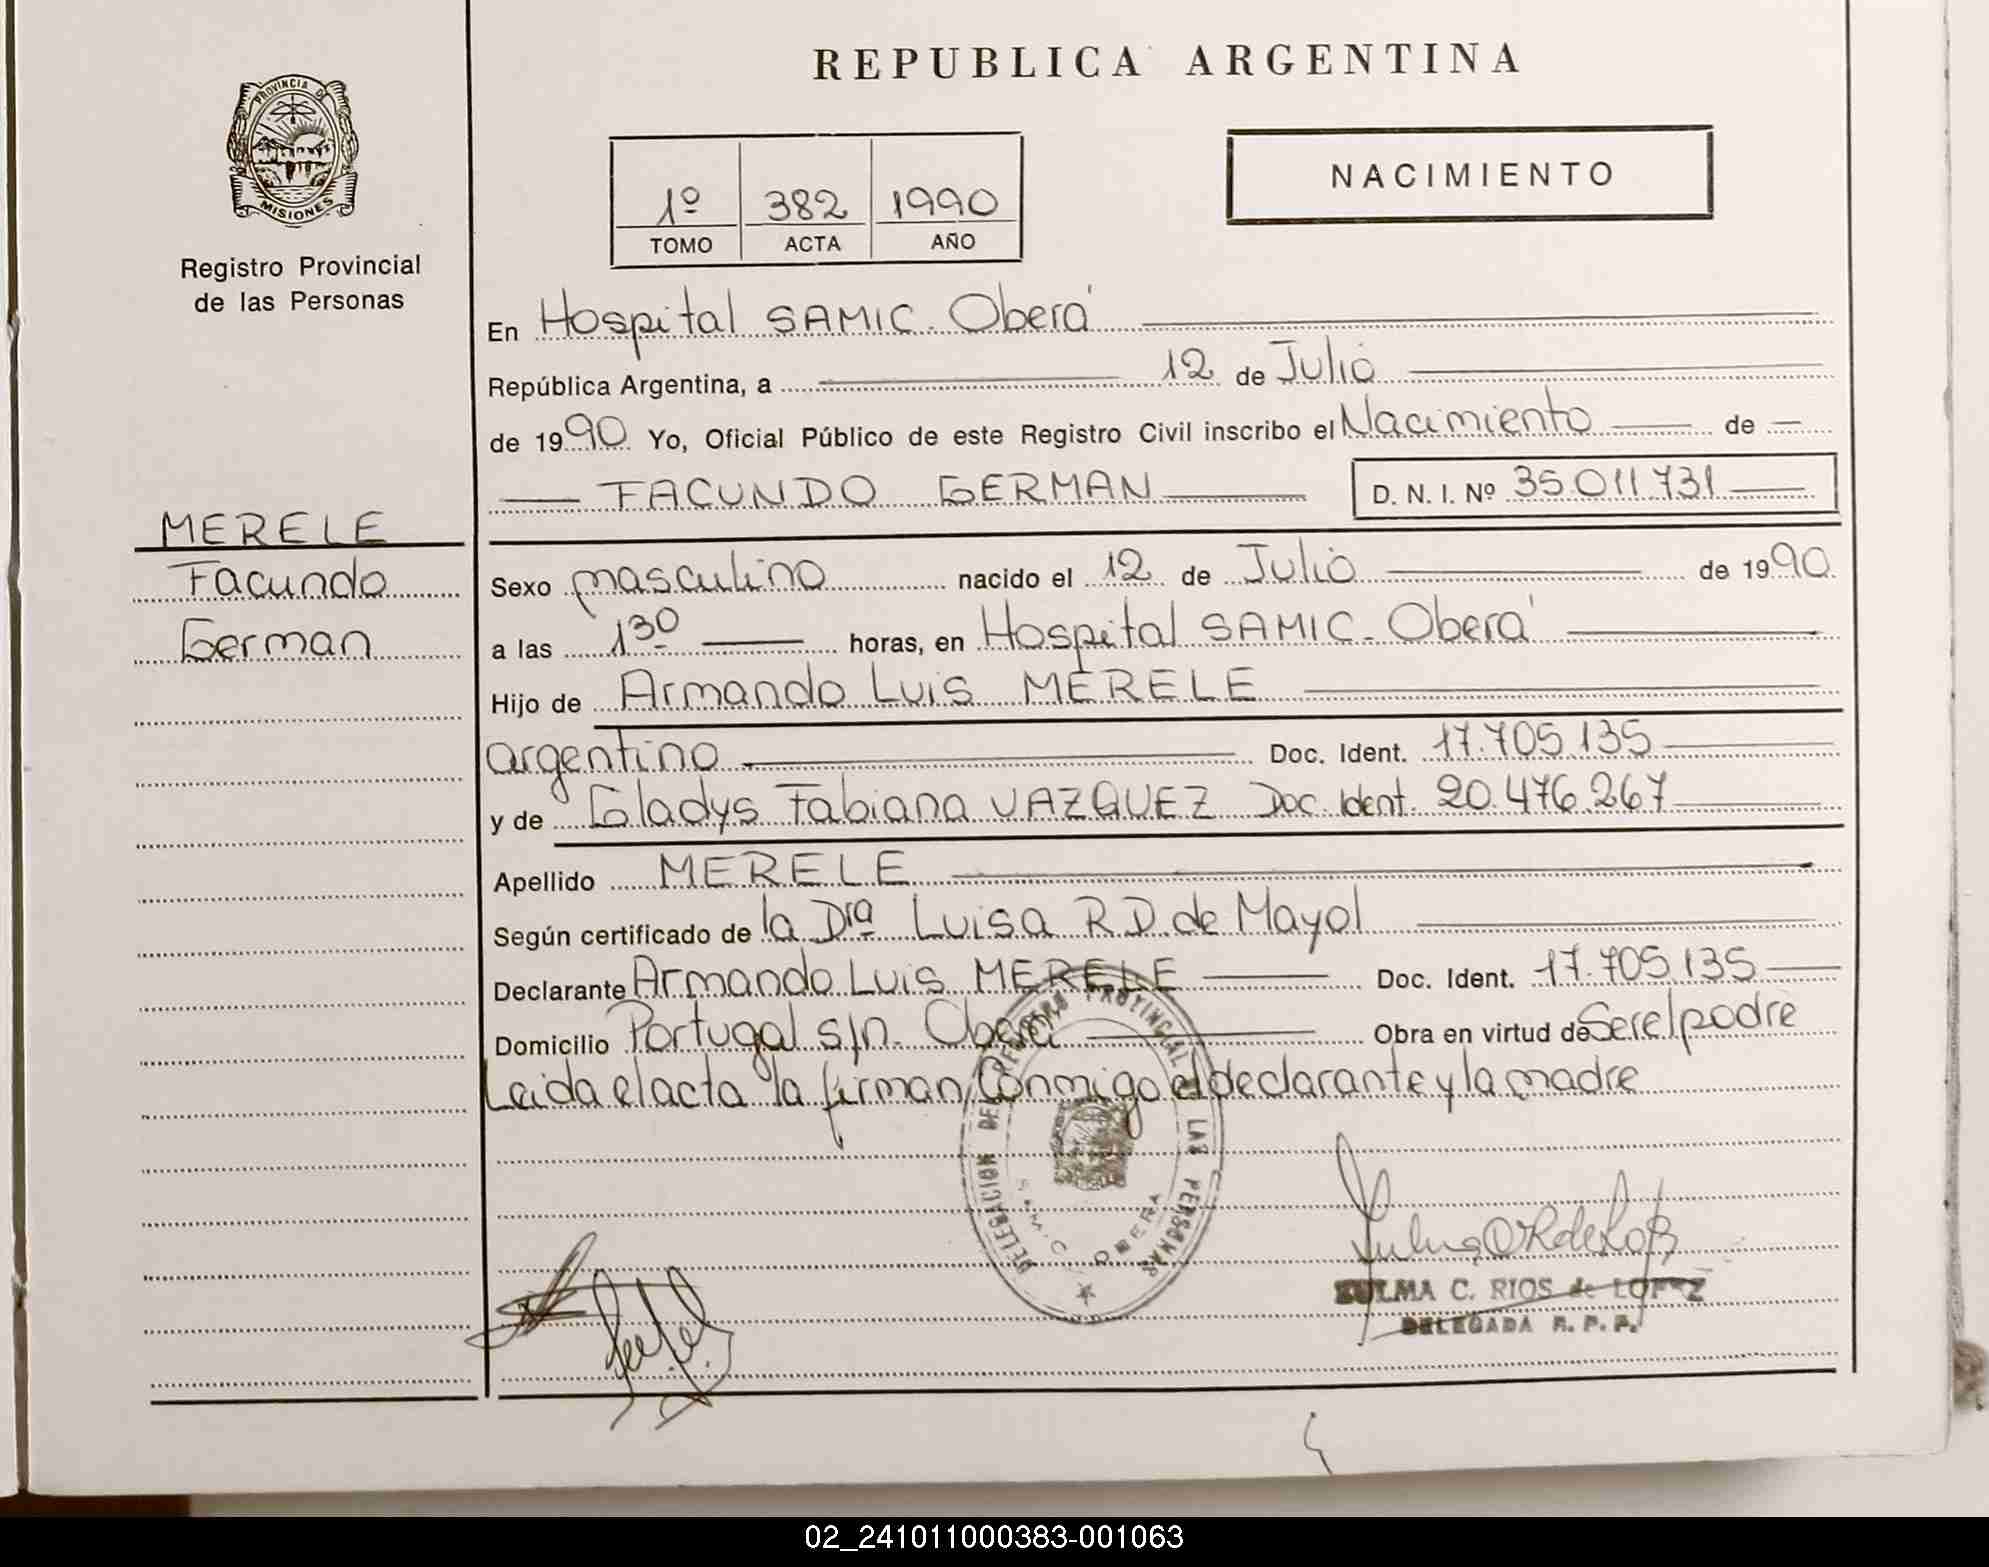 REPUBLICA ARGENTINA
PROVINCIA D
MISIONES
Registro Provincial
de las Personas
1º 382 1990
TOMO ACTA AÑO
NACIMIENTO
MERELE
Facundo
German
En Hospital SAMIC. Oberá
República Argentina, a 12 de Julio
de 1990 Yo, Oficial Público de este Registro Civil inscribo el Nacimiento de
FACUNDO GERMAN D. N. I. Nº 35.011.731
Sexo masculino nacido el 12 de Julio de 1990
a las 1³⁰ horas, en Hospital SAMIC. Oberá
Hijo de Armando Luis MERELE
argentino Doc. Ident. 17.705.135
y de Gladys Fabiana VAZQUEZ Doc. Ident. 20.476.267
Apellido MERELE
Según certificado de la Drª Luisa R.D. de Mayol
Declarante Armando Luis MERELE Doc. Ident. 17.705.135
Domicilio Portugal s/n. Oberá Obra en virtud de Ser el padre
Leida el acta la firman Conmigo el declarante y la madre
DELEGACION DEL REGISTRO PROVINCIAL DE LAS PERSONAS
S.A.M.I.C. OBERA
ZULMA C. RIOS de LOPEZ
DELEGADA R. P. P.
02_241011000383-001063